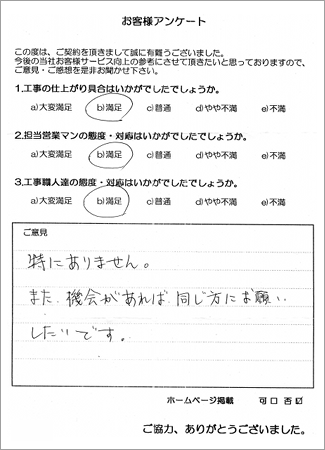 お客様アンケート
この度は、ご契約を頂きまして誠に有難うございました。
今後の当社お客様サービス向上の参考にさせて頂きたいと思っておりますので、
ご意見・ご感想を是非お聞かせ下さい。
1.工事の仕上がり具合はいかがでしたでしょうか。
a)大変満足 b)満足 c)普通 d)やや不満 e)不満
2.担当営業マンの態度・対応はいかがでしたでしょうか。
a)大変満足 b)満足 c)普通 d)やや不満 e)不満
3.工事職人達の態度・対応はいかがでしたでしょうか。
a)大変満足 b)満足 c)普通 d)やや不満 e)不満
ご意見
特にありません。
また、機会があれば、同じ方にお願い
したいです。
ホームページ掲載 可 □ 否 ☑
ご協力、ありがとうございました。